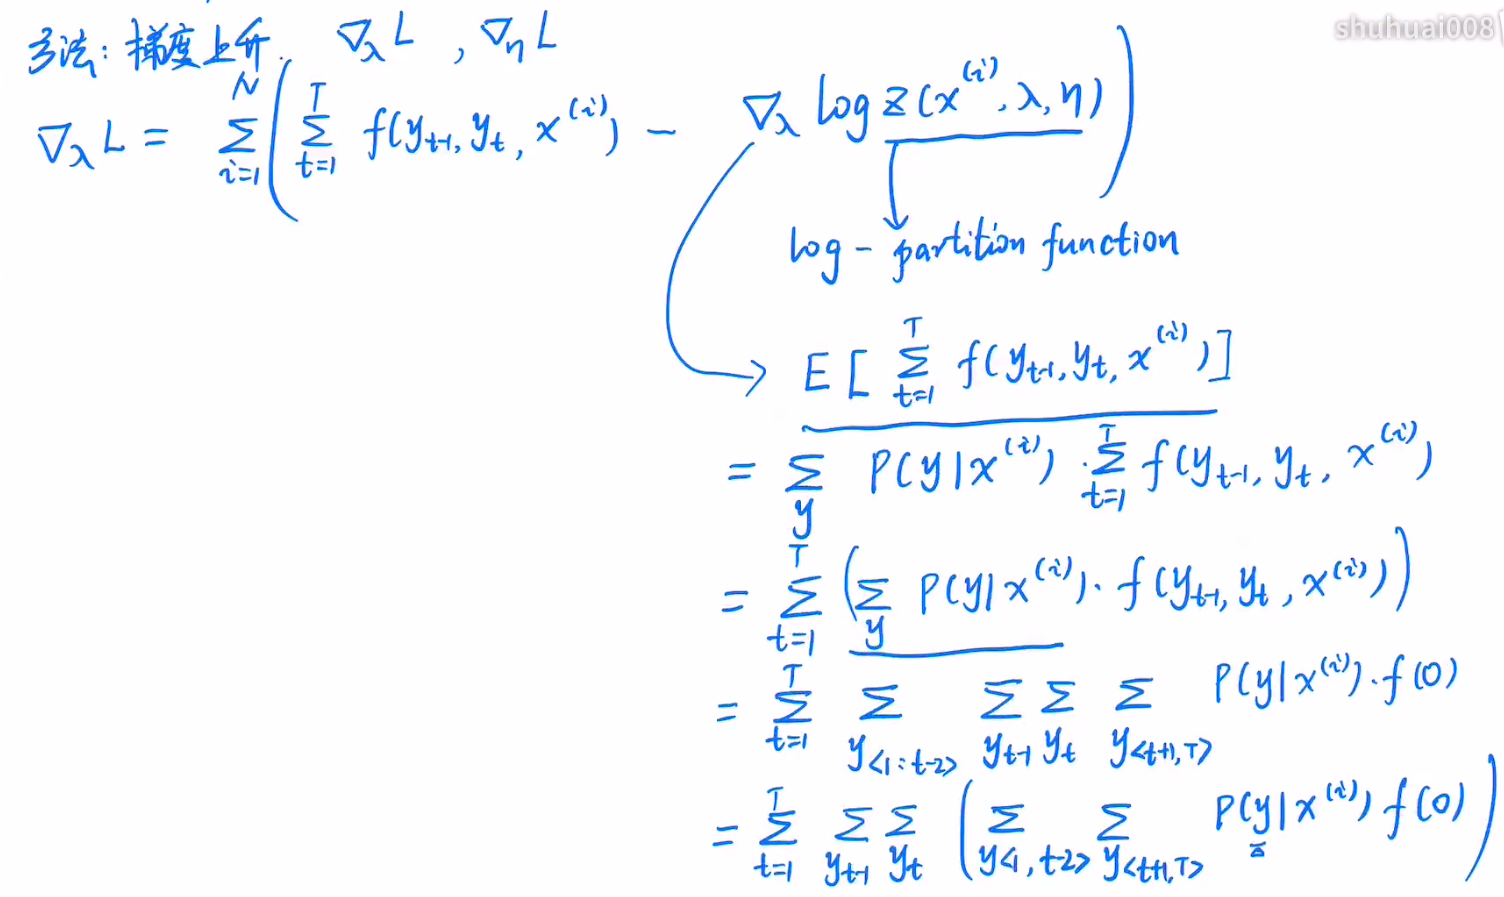 shuhuai008
方法: 梯度上升. ∇λ L , ∇η L
∇λ L = ∑_{i=1}^{N} ( ∑_{t=1}^{T} f(y_{t-1}, y_t, x^{(i)}) − ∇λ log Z(x^{(i)}, λ, η) )
log - partition function
E [ ∑_{t=1}^{T} f(y_{t-1}, y_t, x^{(i)}) ]
= ∑_y P(y|x^{(i)}) · ∑_{t=1}^{T} f(y_{t-1}, y_t, x^{(i)})
= ∑_{t=1}^{T} ( ∑_y P(y|x^{(i)}) · f(y_{t-1}, y_t, x^{(i)}) )
= ∑_{t=1}^{T} ∑_{y<1:t-2>} ∑_{y_{t-1}} ∑_{y_t} ∑_{y<t+1,T>} P(y|x^{(i)}) · f(0)
= ∑_{t=1}^{T} ∑_{y_{t-1}} ∑_{y_t} ( ∑_{y<1,t-2>} ∑_{y<t+1,T>} P(y|x^{(i)}) f(0) )